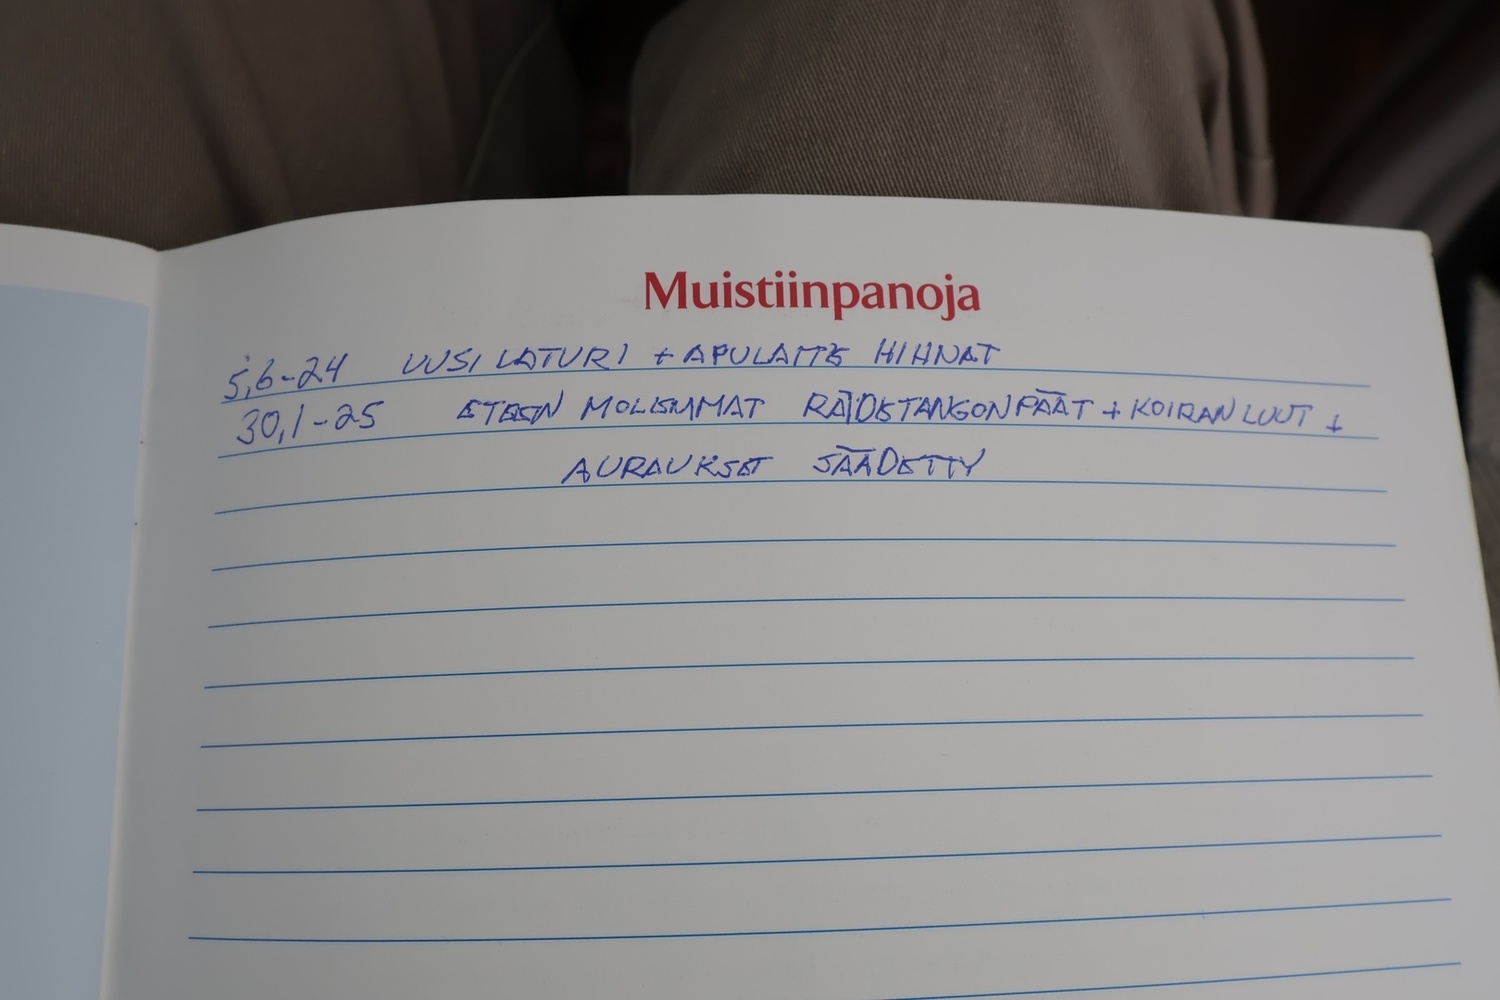 Muistiinpanoja
5,6-24 UUSI LATURI + APULAITE HIHNAT
30,1-25 ETEEN MOLEMMAT RAIDETANGONPÄÄT + KOIRANLUUT +
AURAUKSET SÄÄDETTY